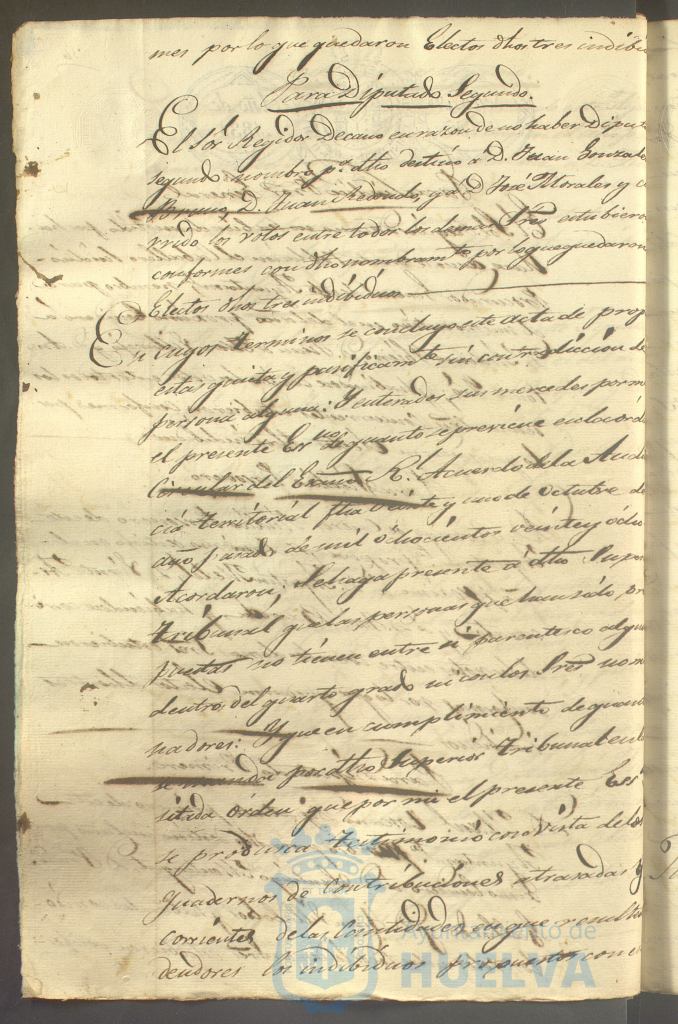 mes por lo que quedaron Electos dhos tres indibi
Para Diputado Segundo.
El Sór Regidor Decano en razon de no haber Diput
segundo nombro pa. dho destino a D. Juan Gonzale
Bruno, D. Juan Redondo, y a D. José Morales y c
rrido los votos entre todos los demas Sres estubiero
conformes con dho nombramto. por lo que quedaron
Electos dhos tres indibiduos
En cuyos terminos se concluyo este acta de prop
estas quieta y pasificamte. sin contradiccion de
persona alguna: Y enterados sus mercedes por m
el presente Essno. de quanto se previene en la orde
Circular del Exmo. Rl. Acuerdo de la Audi
cia territorial fha veinte y uno de octubre de
año pasado de mil ochocientos veinte y ocho
Acordaron; Se haga presente á dho Supor
tribunal, que las personas que han sido pro
puestas no tienen entre si parentesco algu
dentro del quarto grado ni con los Sres nom
nadores: Y que en cumplimiento de quan
se manda por dho Superior tribunal en la
sitada orden que por mi el presente Ess
se produzca testimonio con vista de los
quadernos de Contribuciones atrasadas y
corrientes de las Cantidades en que resulta
deudores los indibiduos propuestos con e
Ayuntamiento de
HUELVA